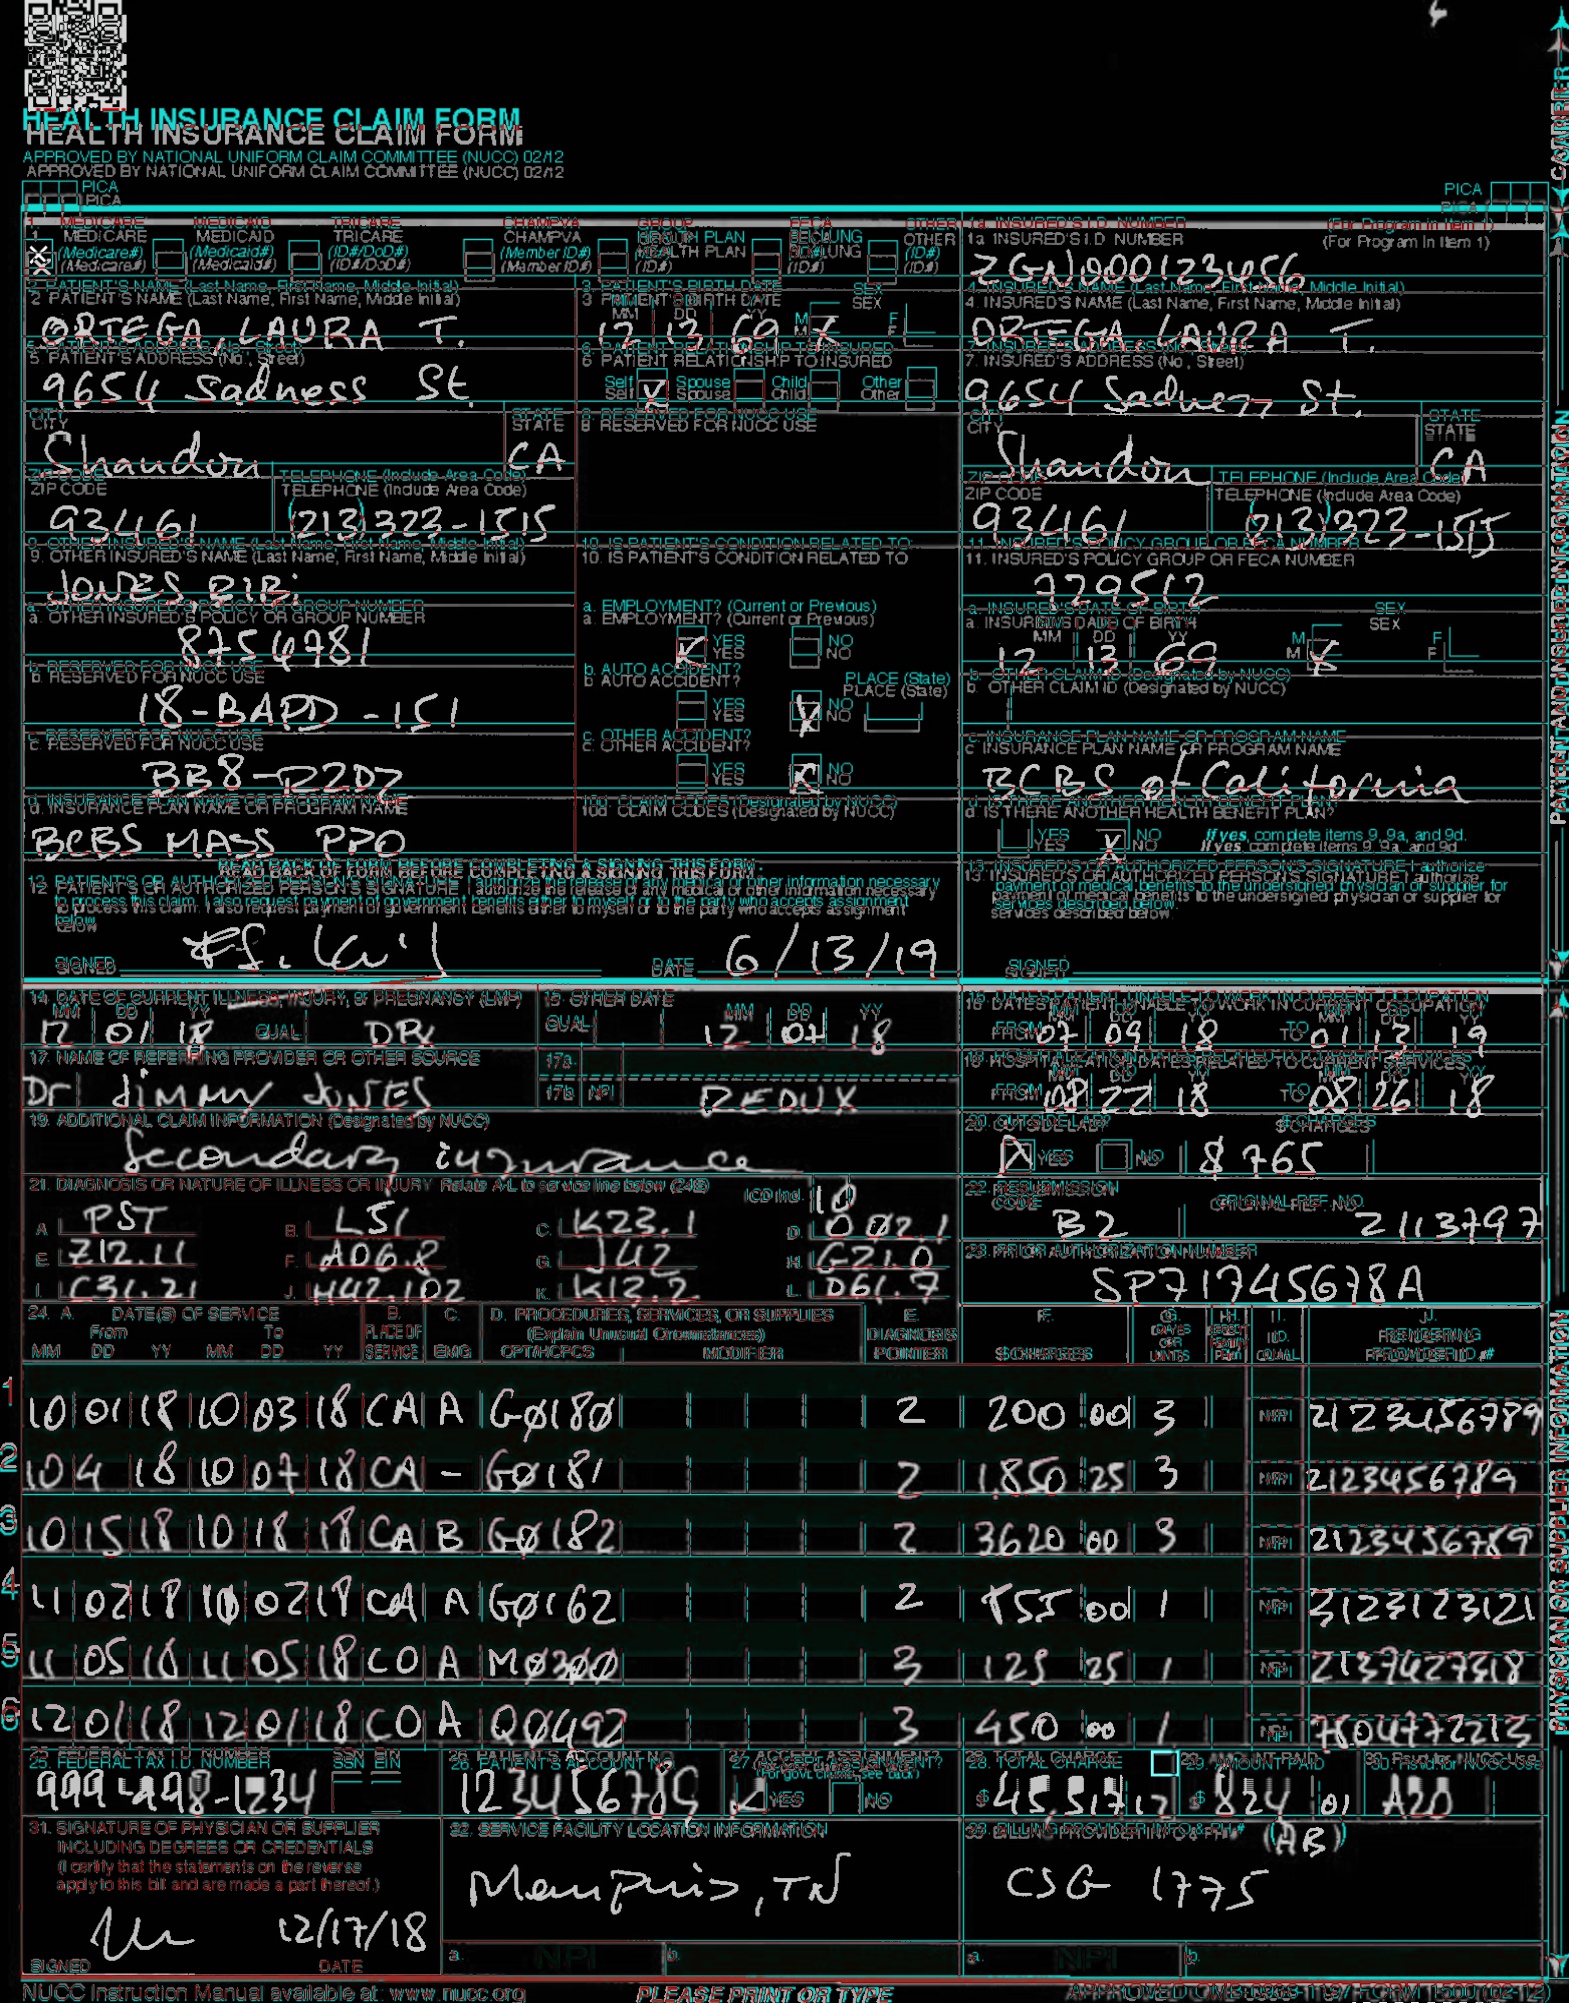 HEALTH INSURANCE CLAIM FORM
APPROVED BY NATIONAL UNIFORM CLAIM COMMITTEE (NUCC) 02/12
PICA PICA
CARRIER
1. MEDICARE MEDICAID TRICARE CHAMPVA GROUP HEALTH PLAN FECA BLK LUNG OTHER
(Medicare#) (Medicaid#) (ID#/DoD#) (Member ID#) (ID#) (ID#) (ID#)
1a. INSURED'S I.D. NUMBER (For Program in Item 1)
ZGN000123456
2. PATIENT'S NAME (Last Name, First Name, Middle Initial)
ORTEGA, LAURA T.
3. PATIENT'S BIRTH DATE SEX
MM DD YY M F
12 13 69 X
4. INSURED'S NAME (Last Name, First Name, Middle Initial)
ORTEGA LAURA T.
5. PATIENT'S ADDRESS (No., Street)
9654 Sadness St.
6. PATIENT RELATIONSHIP TO INSURED
Self X Spouse Child Other
7. INSURED'S ADDRESS (No., Street)
9654 Sadness St.
CITY STATE
Shandon CA
8. RESERVED FOR NUCC USE
CITY STATE
Shandon CA
ZIP CODE TELEPHONE (Include Area Code)
93461 (213) 323-1515
ZIP CODE TELEPHONE (Include Area Code)
93461 (213) 323-1515
9. OTHER INSURED'S NAME (Last Name, First Name, Middle Initial)
JONES, BIBi
10. IS PATIENT'S CONDITION RELATED TO:
11. INSURED'S POLICY GROUP OR FECA NUMBER
729512
a. OTHER INSURED'S POLICY OR GROUP NUMBER
8754781
a. EMPLOYMENT? (Current or Previous)
X YES NO
a. INSURED'S DATE OF BIRTH SEX
MM DD YY M F
12 13 69 X
b. RESERVED FOR NUCC USE
18-BAPD-151
b. AUTO ACCIDENT? PLACE (State)
YES X NO
b. OTHER CLAIM ID (Designated by NUCC)
c. RESERVED FOR NUCC USE
BB8-R2D2
c. OTHER ACCIDENT?
YES X NO
c. INSURANCE PLAN NAME OR PROGRAM NAME
BCBS of California
d. INSURANCE PLAN NAME OR PROGRAM NAME
BCBS MASS PPO
10d. CLAIM CODES (Designated by NUCC)
d. IS THERE ANOTHER HEALTH BENEFIT PLAN?
YES X NO If yes, complete items 9, 9a, and 9d.
READ BACK OF FORM BEFORE COMPLETING & SIGNING THIS FORM.
12. PATIENT'S OR AUTHORIZED PERSON'S SIGNATURE I authorize the release of any medical or other information necessary
to process this claim. I also request payment of government benefits either to myself or to the party who accepts assignment
below.
SIGNED DATE 6/13/19
13. INSURED'S OR AUTHORIZED PERSON'S SIGNATURE I authorize
payment of medical benefits to the undersigned physician or supplier for
services described below.
SIGNED
PATIENT AND INSURED INFORMATION
14. DATE OF CURRENT ILLNESS, INJURY, or PREGNANCY (LMP)
MM DD YY
12 01 18 QUAL.
15. OTHER DATE
QUAL. MM DD YY
12 07 18
16. DATES PATIENT UNABLE TO WORK IN CURRENT OCCUPATION
FROM 07 09 18 TO 01 13 19
17. NAME OF REFERRING PROVIDER OR OTHER SOURCE
Dr Jimmy JONES
17a.
17b. NPI REDUX
18. HOSPITALIZATION DATES RELATED TO CURRENT SERVICES
FROM 08 22 18 TO 08 26 18
19. ADDITIONAL CLAIM INFORMATION (Designated by NUCC)
Secondary insurance
20. OUTSIDE LAB? $ CHARGES
X YES NO $ 765
21. DIAGNOSIS OR NATURE OF ILLNESS OR INJURY Relate A-L to service line below (24E) ICD Ind. 10
A. PST B. L51 C. K23.1 D. 002.1
E. Z12.11 F. A06.8 G. J42 H. G21.0
I. C31.21 J. H42.102 K. K12.2 L. D61.7
22. RESUBMISSION CODE ORIGINAL REF. NO.
B2 2113797
23. PRIOR AUTHORIZATION NUMBER
SP71745678A
24. A. DATE(S) OF SERVICE B. C. D. PROCEDURES, SERVICES, OR SUPPLIES E. F. G. H. I. J.
From To PLACE OF (Explain Unusual Circumstances) DIAGNOSIS DAYS OR ID. RENDERING
MM DD YY MM DD YY SERVICE EMG CPT/HCPCS MODIFIER POINTER $ CHARGES UNITS QUAL. PROVIDER ID. #
1 10 01 18 10 03 18 CA A G0180 2 200 00 3 NPI 2123456789
2 10 4 18 10 07 18 CA - G0181 2 1,850 25 3 NPI 2123456789
3 10 15 18 10 18 18 CA B G0182 2 3620 00 3 NPI 2123456789
4 11 02 18 10 02 18 CA A G0162 2 855 00 1 NPI 3123123121
5 11 05 18 11 05 18 CO A M0300 3 125 25 1 NPI 2137427318
6 12 01 18 12 01 18 CO A Q0492 3 450 00 1 NPI 7804772213
25. FEDERAL TAX I.D. NUMBER SSN EIN
999-998-1234
26. PATIENT'S ACCOUNT NO.
123456789
27. ACCEPT ASSIGNMENT?
(For govt. claims, see back)
X YES NO
28. TOTAL CHARGE
$ 45,517 12
29. AMOUNT PAID
$ 824 01
30. Rsvd for NUCC Use
A20
31. SIGNATURE OF PHYSICIAN OR SUPPLIER
INCLUDING DEGREES OR CREDENTIALS
(I certify that the statements on the reverse
apply to this bill and are made a part thereof.)
12/17/18
SIGNED DATE
32. SERVICE FACILITY LOCATION INFORMATION
Memphis, TN
a. NPI b.
33. BILLING PROVIDER INFO & PH # (AB)
CSG 1775
a. NPI b.
PHYSICIAN OR SUPPLIER INFORMATION
NUCC Instruction Manual available at: www.nucc.org PLEASE PRINT OR TYPE APPROVED OMB-0938-1197 FORM 1500 (02-12)